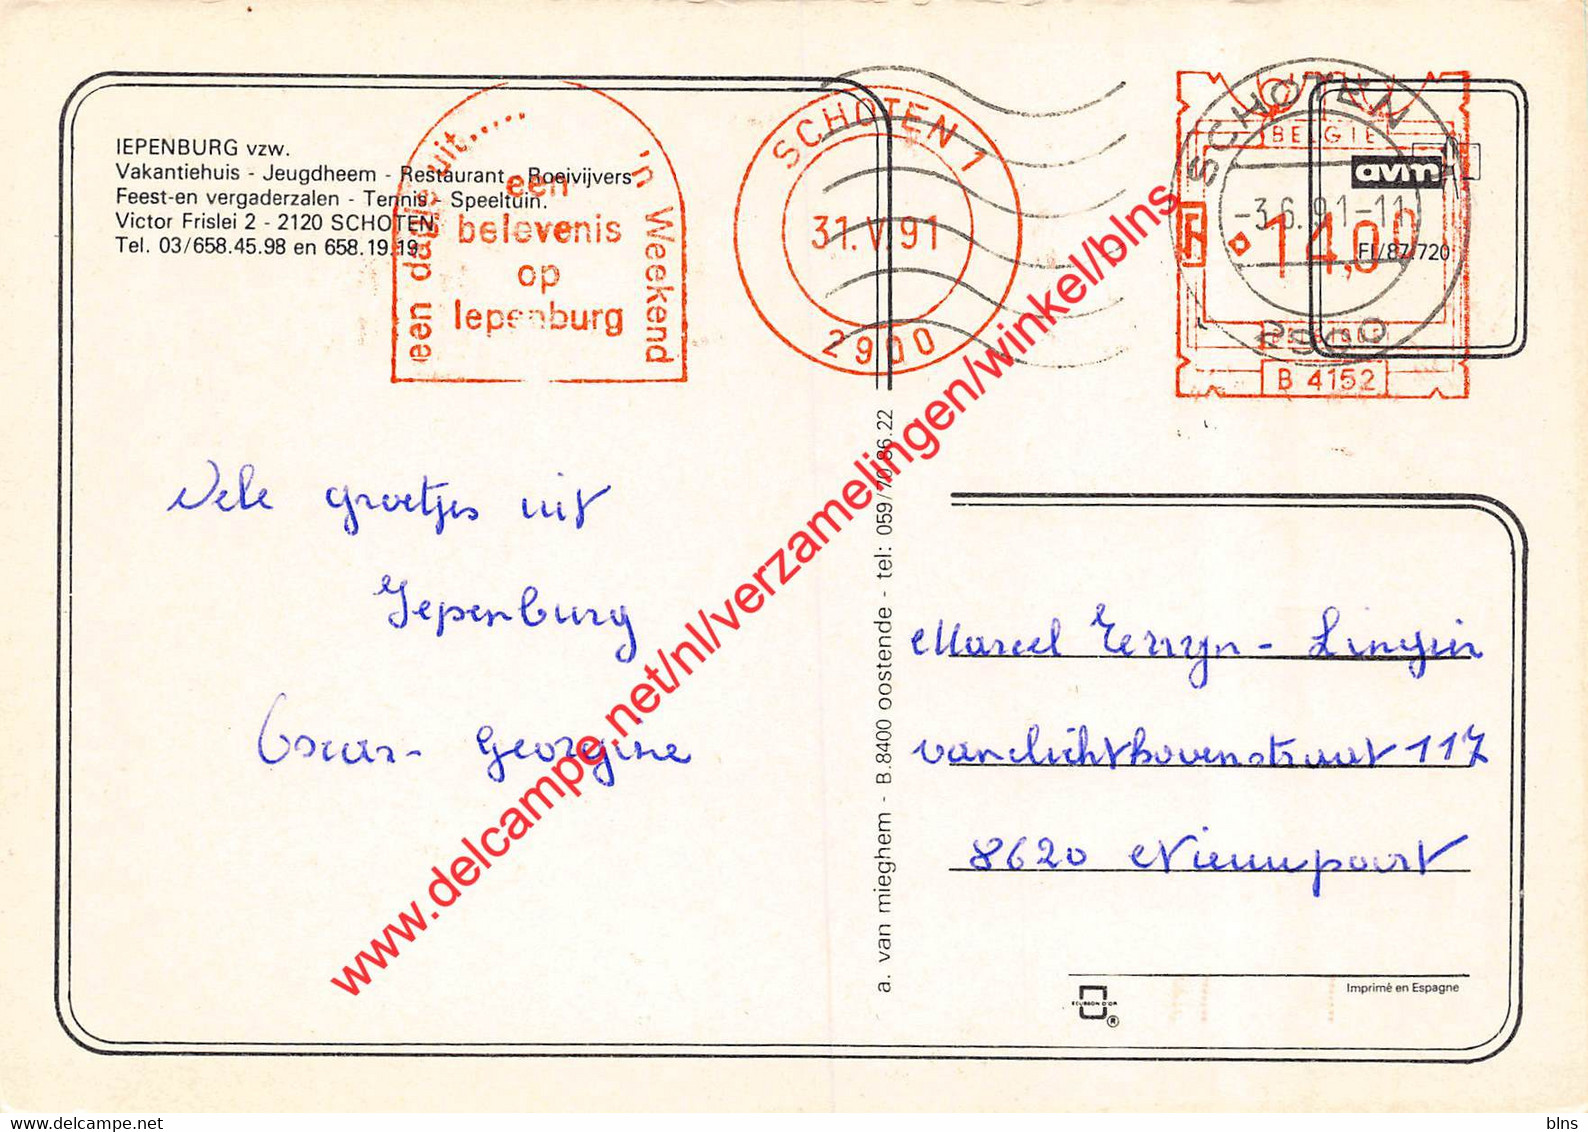 IEPENBURG vzw.
Vakantiehuis - Jeugdheem - Restaurant - Roeivijvers
Feest-en vergaderzalen - Tennis - Speeltuin.
Victor Frislei 2 - 2120 SCHOTEN
Tel. 03/658.45.98 en 658.19.19.
een dagje uit.....
een
belevenis
op
Iepenburg
'n Weekend
SCHOTEN 1
31.V.91
2900
SCHOTEN
-3.6.91-11
2900
BELGIE
14,00
B 4152
avm
FI/87/720
Vele groetjes uit
Iepenburg
Oscar - Georgine
a. van mieghem - B.8400 oostende - tel: 059/70.86.22
Marcel
vanlichthovenstraat 117
8620 Nieuwpoort
Imprimé en Espagne
ECUSSON D'OR
®
www.delcampe.net/nl/verzamelingen/winkel/blns
Delcampe.net
blns